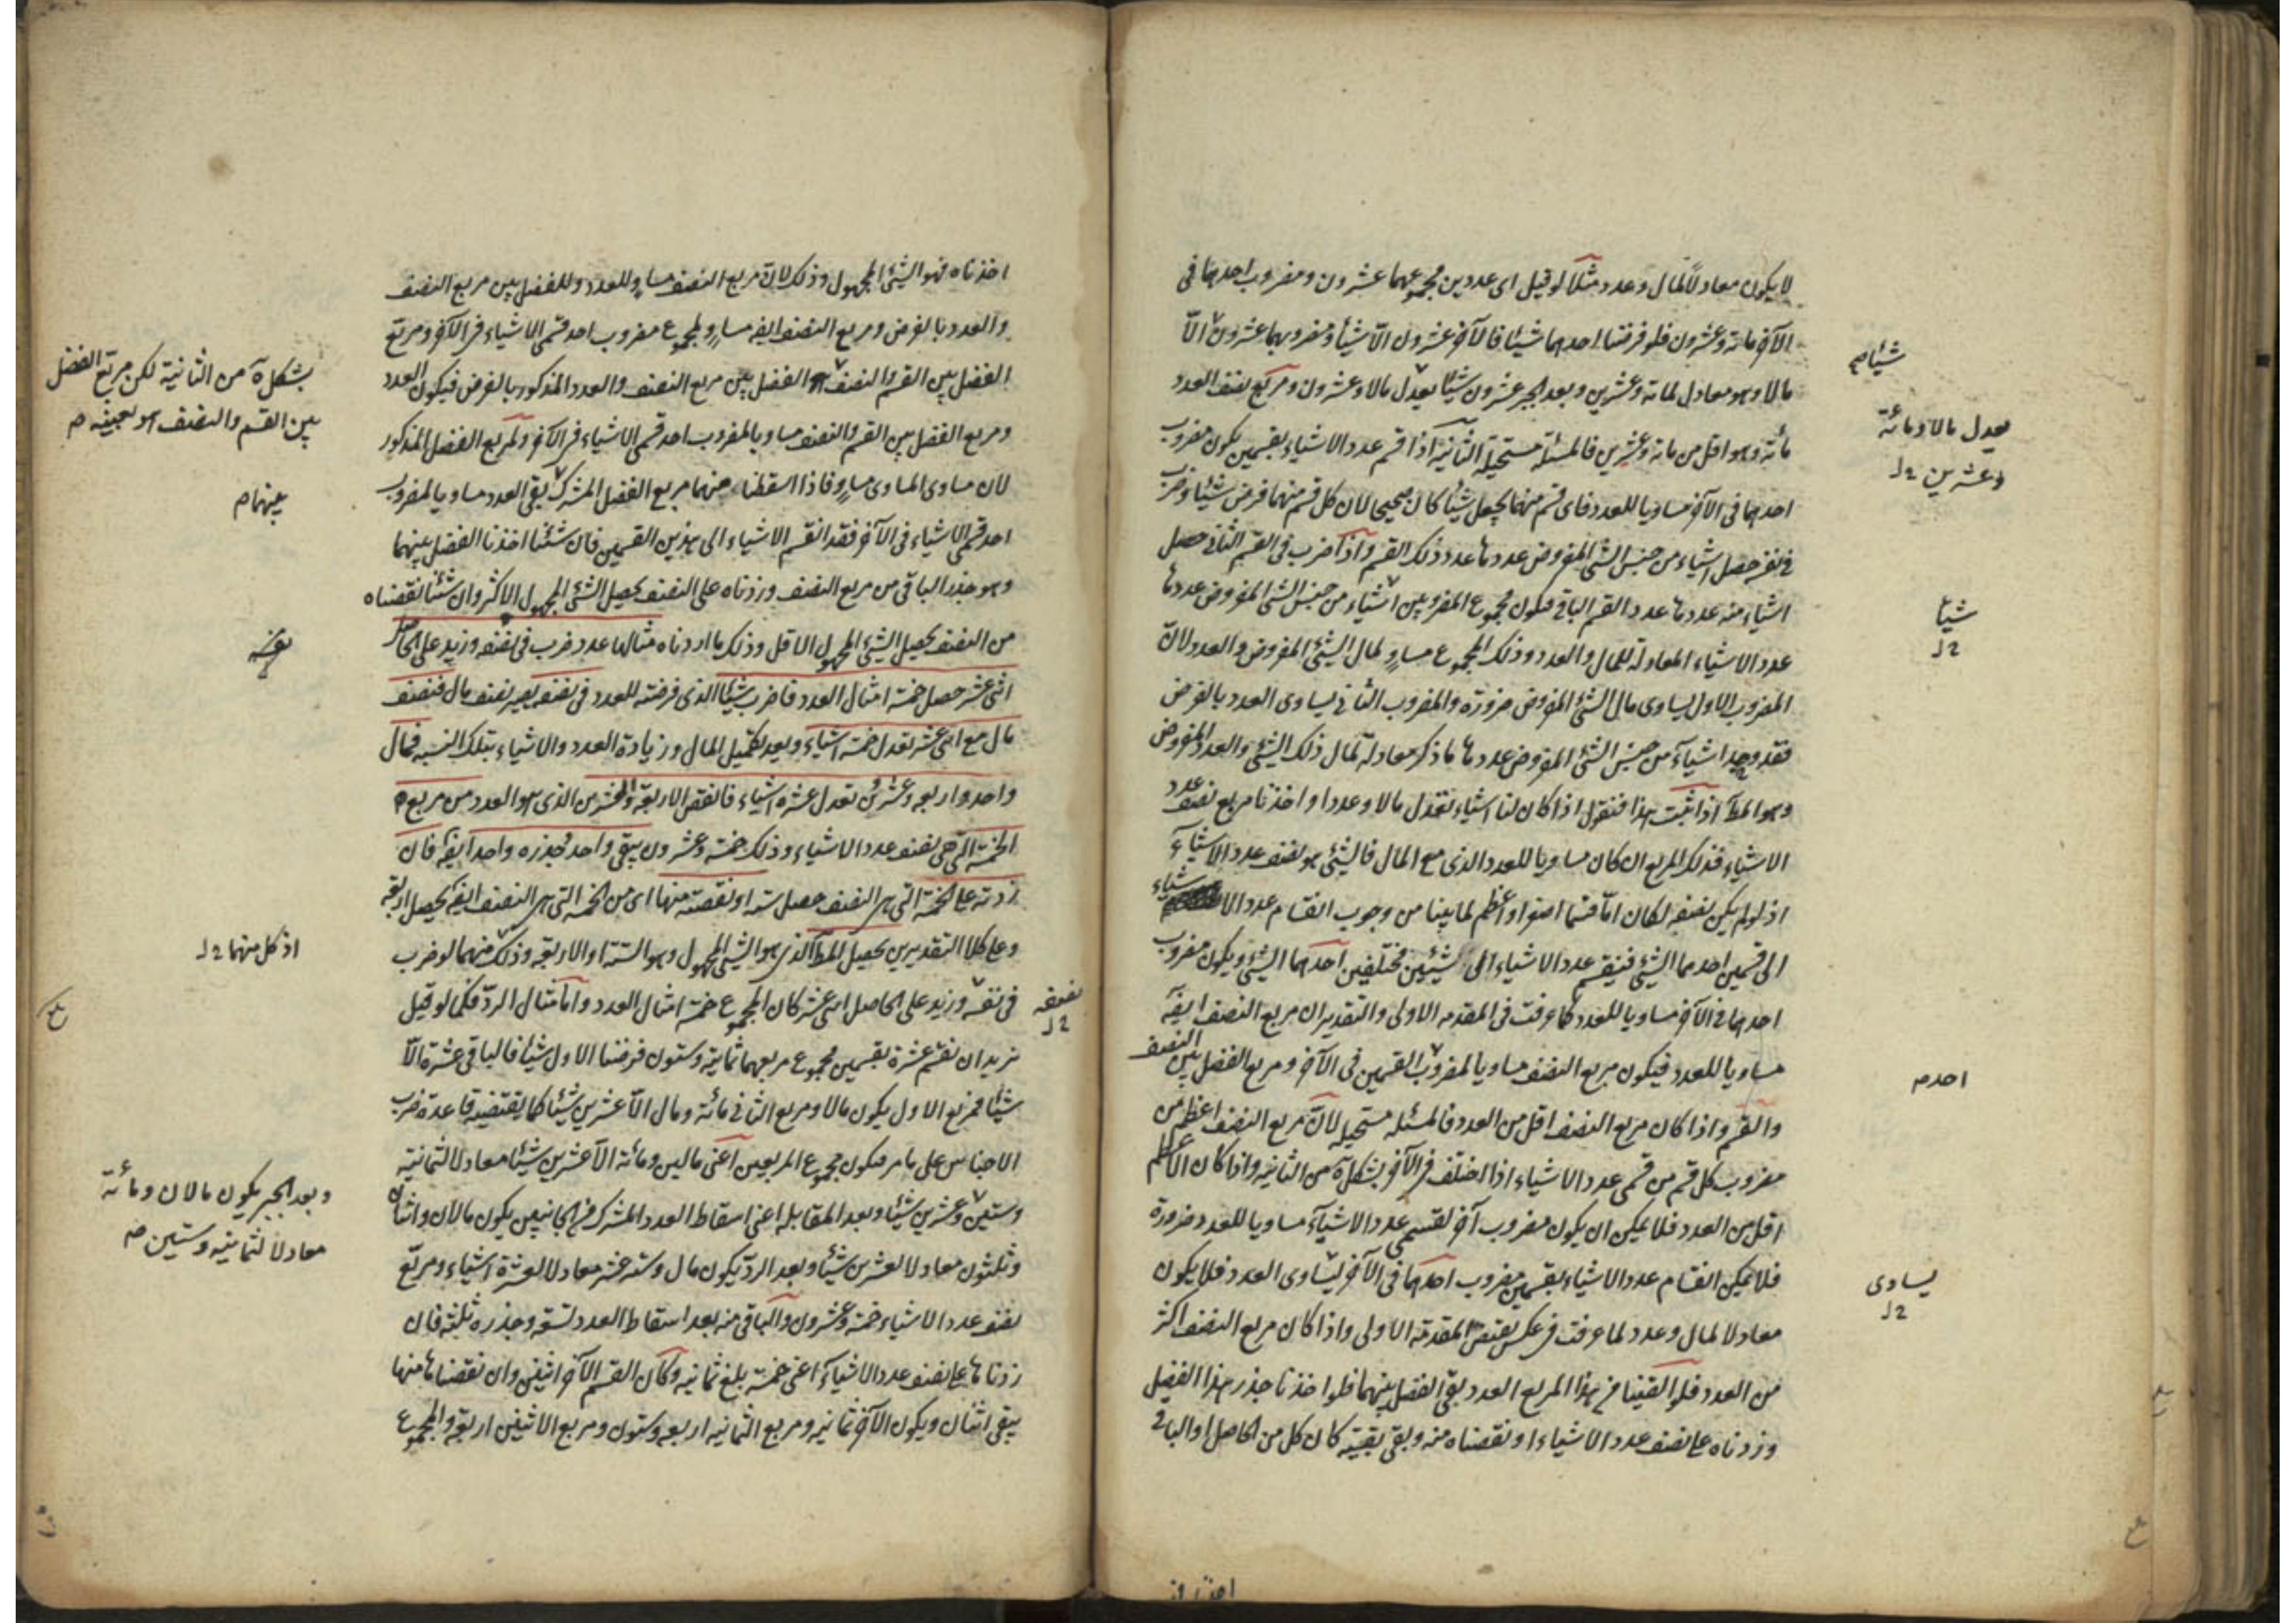 لا يكون معادلا لمال وعدد مثلا لو قيل اى عددين مجموعهما عشرون ومضروب احدهما فى
الآخر مائة وعشرون فلو فرضنا احدهما شيئا فالآخر عشرون الا شيئا ومضروبهما عشرون الا
مالا وهو معادل لمائة وعشرين وبعد الجبر عشرون شيئا يعدل مالا وعشرون ومربع نصف العدد
مائة وهو اقل من مائة وعشرين فالمسئلة مستحيلة الثانية اذا قسم عدد الاشياء بقسمين يكون مضروب
احدهما فى الآخر مساويا للعدد فاى قسم منهما يجعل شيئا كان صحيحا لان كل قسم منهما فرض شيئا وضرب
فى نفسه حصل اشياء من جنس الشئ المفروض عددها عدد ذلك القسم واذا ضرب فى القسم الثانى حصل
اشياء منه عددها عدد القسم الباقى فيكون مجموع المضروبين اشياء من جنس الشئ المفروض عددها
عدد الاشياء المعادلة للمال والعدد وذلك المجموع مساو لمال الشئ المفروض والعدد لان
المضروب الاول يساوى مال الشئ المفروض ضرورة والمضروب الثانى يساوى العدد بالفرض
فقد وجد اشياء من جنس الشئ المفروض عددها ما ذكر معادلة لمال ذلك الشئ والعدد المفروض
وهو المط اذا ثبت هذا فنقول اذا كان لنا اشياء تعدل مالا وعددا واخذنا مربع نصف عدد
الاشياء فذلك المربع ان كان مساويا للعدد الذى مع المال فالشئ هو نصف عدد الاشياء
اذ لو لم يكن نصفه لكان اما قسما اصغر او اعظم لما بينا من وجوب انقسام عدد الاشياء
الى قسمين احدهما الشئ فينقسم عدد الاشياء الى شيئين مختلفين احدهما الشئ ويكون مضروب
احدهما فى الآخر مساويا للعدد كما عرفت فى المقدمه الاولى والتقدير ان مربع النصف ايضه
مساويا للعدد فيكون مربع النصف مساويا لمضروب القسمين فى الآخر ومربع الفضل بين النصف
والقسم واذا كان مربع النصف اقل من العدد فالمسئله مستحيله لان مربع النصف اعظم من
مضروب كل قسم من قسمى عدد الاشياء اذا اختلف فى الآخر بشكل ه من الثانيه واذا كان الاعظم
اقل من العدد فلا يمكن ان يكون مضروب آخر لقسمى عدد الاشياء مساويا للعدد ضرورة
فلا يمكن انقسام عدد الاشياء بقسمين مضروب احدهما فى الآخر يساوى العدد فلا يكون
معادلا لمال وعدد لما عرفت فى عكس نقيض المقدمة الاولى واذا كان مربع النصف اكثر
من العدد فلو القينا من هذا المربع العدد بقى الفضل بينهما فلو اخذنا جذر هذا الفضل
وزدناه على نصف عدد الاشياء او نقصناه منه وبقى بقية كان كل من الحاصل او الباقى
شيئا م
يعدل مالا ومائة
وعشرين
شيئا
احد م
يساوى
اخذناه فهو الشئ المجهول وذلك لان مربع النصف مساو للعدد وللفضل بين مربع النصف
والعدد بالفرض ومربع النصف ايضه مساو لمجموع مضروب احد قسمى الاشياء فى الآخر ومربع
الفضل بين القسم والنصف الفضل بين مربع النصف والعدد المذكور بالفرض فيكون العدد
ومربع الفضل بين القسم والنصف مساويا لمضروب احد قسمى الاشياء فى الآخر ولمربع الفضل المذكور
لان مساوى المساوى مساو فاذا اسقطنا منهما مربع الفضل المشترك بقى العدد مساويا لمضروب
احد قسمى الاشياء فى الآخر فقد انقسم الاشياء الى هذين القسمين فان شئنا اخذنا الفضل بينهما
وهو جذر الباقى من مربع النصف وزدناه على النصف يحصل الشئ المجهول الاكثر وان شئنا نقصناه
من النصف يحصل الشئ المجهول الاقل وذلك ما اردناه مثالها عدد ضرب فى نصفه وزيد على الحاصل
اثنى عشر حصل خمسة امثال العدد فاضرب شيئا الذى فرضته للعدد فى نصفه يصير نصف مال فنصف
مال مع اثنى عشر تعدل خمسة اشياء وبعد تكميل المال وزيادة العدد والاشياء بتلك النسبه فمال
واحد واربعة وعشرون تعدل عشرة اشياء فانقص الاربعة والعشرين الذى هو العدد من مربع
الخمسة التى هى نصف عدد الاشياء وذلك خمسة وعشرون يبقى واحد فجذره واحد ايضه فان
زدته على الخمسة التى هى النصف حصل ستة او نقصته منها اى من الخمسة التى هى النصف ايضه يحصل اربعة
وعلى كلا التقديرين يحصل المط الذى هو الشئ المجهول وهو الستة او الاربعه وذلك منهما لو ضرب
فى نفسه وزيد على الحاصل اثنى عشر كان المجموع خمسة امثال العدد واما مثال الرد فكما لو قيل
نريد ان نقسم عشرة بقسمين مجموع مربعهما ثمانية وستون فرضنا الاول شيئا فالباقى عشرة الا
شيئا فمربع الاول يكون مالا ومربع الثانى مائة ومال الا عشرين شيئا كما يقتضيه قاعدة ضرب
الاجناس على ما مر فيكون مجموع المربعين اعنى مالين ومائة الا عشرين شيئا معادلا لثمانية
وستين وعشرين شيئا وبعد المقابله اعنى اسقاط العدد المشترك من الجانبين يكون مالان واثنان
وثلثون معادلا لعشرين شيئا وبعد الرد يكون مال وستة عشر معادلا لعشرة اشياء ومربع
نصف عدد الاشياء خمسة وعشرون والباقى منه بعد اسقاط العدد تسعة وجذره ثلثه فان
زدناها على نصف عدد الاشياء اعنى خمسة بلغ ثمانيه وكان القسم الآخر اثنين وان نقصناها منها
يبقى اثنان ويكون الآخر ثمانيه ومربع الثمانيه اربعه وستون ومربع الاثنين اربعة والمجموع
بشكل ه من الثانية لكن مربع الفضل
بين القسم والنصف هو بعينه م
بينهما م
اذ كل منهما
نصفه
وبعد الجبر يكون مالان ومائة
معادلا لثمانيه وستين م